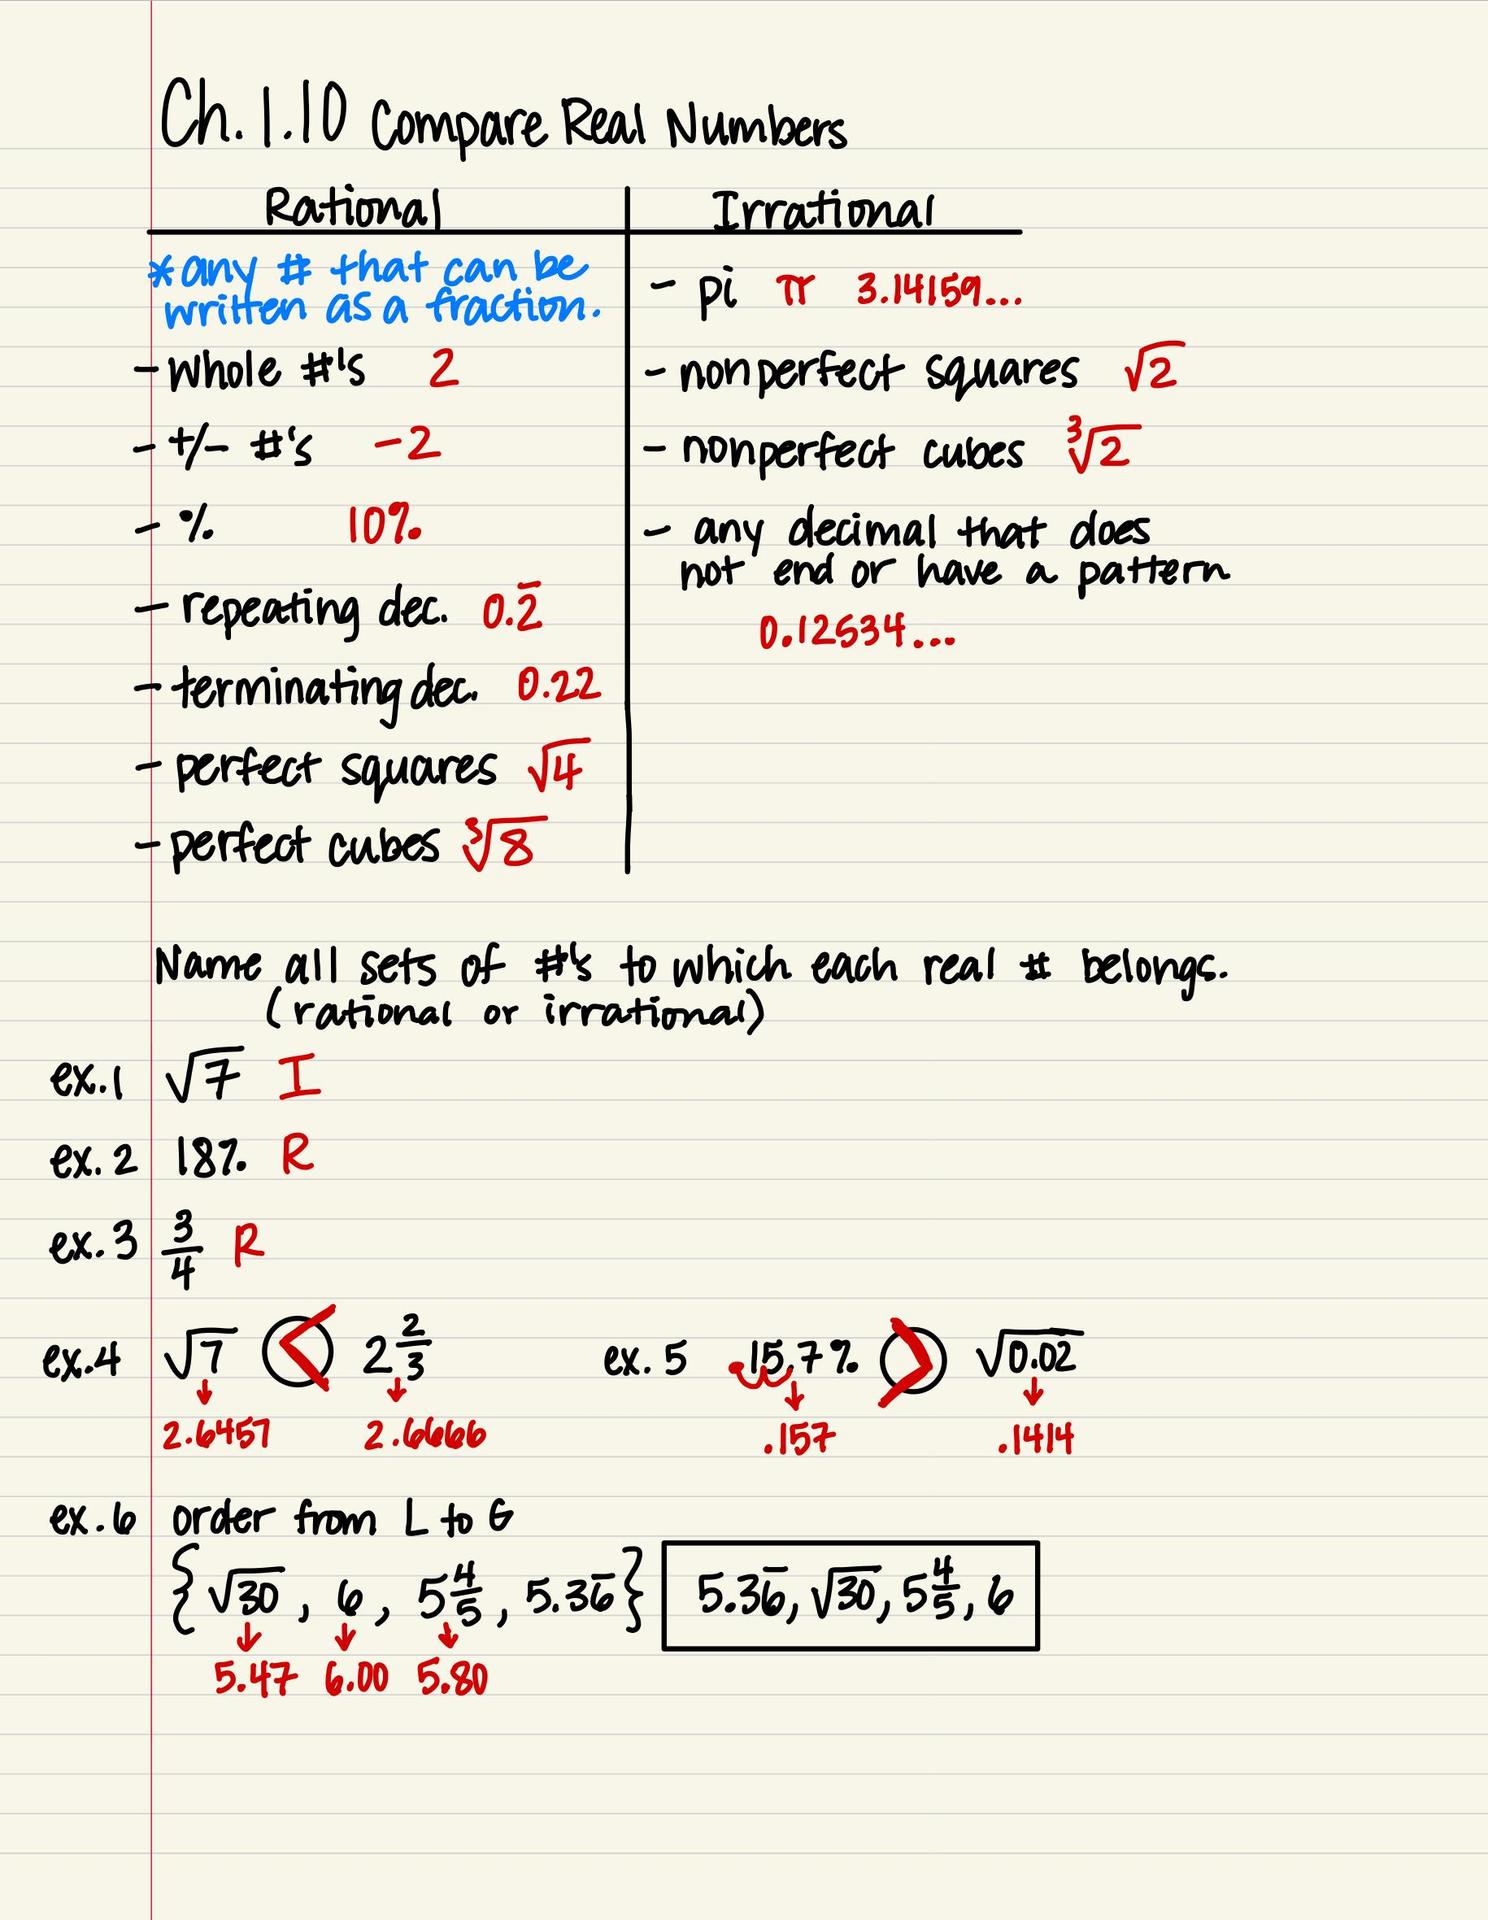 Ch. 1.10 Compare Real Numbers
Rational
*any # that can be
written as a fraction.
- whole #'s 2
- +/- #'s -2
- % 10%
- repeating dec. 0.2̅
- terminating dec. 0.22
- perfect squares √4
- perfect cubes ∛8
Irrational
- pi π 3.14159...
- nonperfect squares √2
- nonperfect cubes ∛2
- any decimal that does
not end or have a pattern
0.12534...
Name all sets of #'s to which each real # belongs.
(rational or irrational)
ex.1 √7 I
ex. 2 18% R
ex. 3 3/4 R
ex.4 √7 < 2 2/3
2.6457 2.6666
ex. 5 15.7% > √0.02
.157 .1414
ex. 6 order from L to G
{√30, 6, 5 4/5, 5.36̅} 5.36̅, √30, 5 4/5, 6
5.47 6.00 5.80